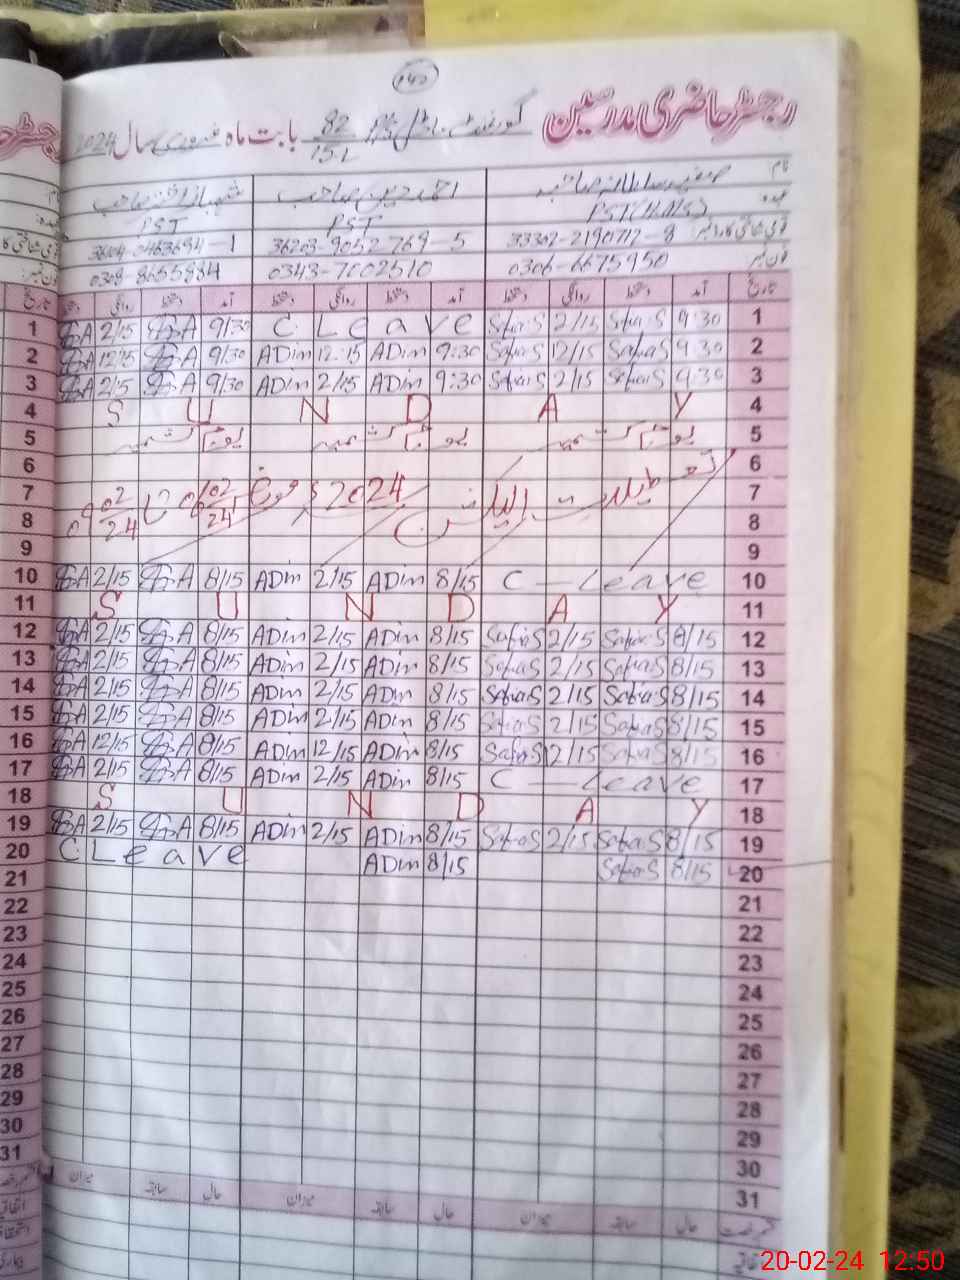 رجسٹر حاضری مدرسین گورنمنٹ ماڈل پرائمری 82/15.L بابت ماہ فروری سال 2024
نام صفیہ سلطانہ صاحبہ احمد دین صاحب شہباز احمد صاحب
عہدہ PST(H.M's) PST PST
قومی شناختی کارڈ نمبر 33302-2190717-8 36203-9052769-5 36104-0463694-1
فون نمبر 0306-6675950 0343-7002510 0308-8655884
تاریخ آمد دستخط روانگی دستخط آمد دستخط روانگی دستخط آمد دستخط روانگی دستخط تاریخ
1 9:30 Safia S 2/15 Safia S C Leave 9/30 A 2/15 A 1
2 9:30 Safia S 12/15 Safia S 9:30 ADin 12:15 ADin 9/30 A 12/15 A 2
3 9:30 Safia S 2/15 Safia S 9:30 ADin 2/15 ADin 9/30 A 2/15 A 3
4 S U N D A Y 4
5 یوم کشمیر یوم کشمیر یوم کشمیر 5
6 6
7 تعطیلات الیکشن 2024 06/02/24 تا 09/02/24 7
8 8
9 9
10 C - Leave 8/15 ADin 2/15 ADin 8/15 A 2/15 A 10
11 S U N D A Y 11
12 8/15 Safia S 2/15 Safia S 8/15 ADin 2/15 ADin 8/15 A 2/15 A 12
13 8/15 Safia S 2/15 Safia S 8/15 ADin 2/15 ADin 8/15 A 2/15 A 13
14 8/15 Safia S 2/15 Safia S 8/15 ADin 2/15 ADin 8/15 A 2/15 A 14
15 8/15 Safia S 2/15 Safia S 8/15 ADin 2/15 ADin 8/15 A 2/15 A 15
16 8/15 Safia S 12/15 Safia S 8/15 ADin 12/15 ADin 8/15 A 12/15 A 16
17 C - Leave 8/15 ADin 2/15 ADin 8/15 A 2/15 A 17
18 S U N D A Y 18
19 8/15 Safia S 2/15 Safia S 8/15 ADin 2/15 ADin 8/15 A 2/15 A 19
20 8/15 Safia S 8/15 ADin C Leave 20
21 21
22 22
23 23
24 24
25 25
26 26
27 27
28 28
29 29
30 30
31 31
حال سابقہ میزان حال سابقہ میزان حال سابقہ میزان
20-02-24 12:50